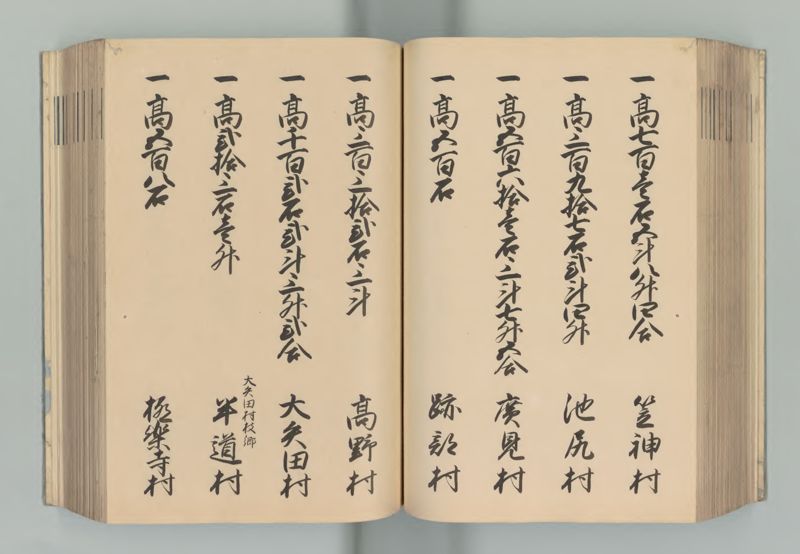 一高七百壱石五斗八升四合 笠神村
一高三百九拾七石弐斗四升 池尻村
一高五百六拾壱石三斗七升五合 廣見村
一高五百石 跡部村
一高三百三拾弐石三斗 高野村
一高千百弐石弐斗三升弐合 大矢田村
一高弐拾三石壱升 大矢田村枝郷 半道村
一高五百八石 極楽寺村